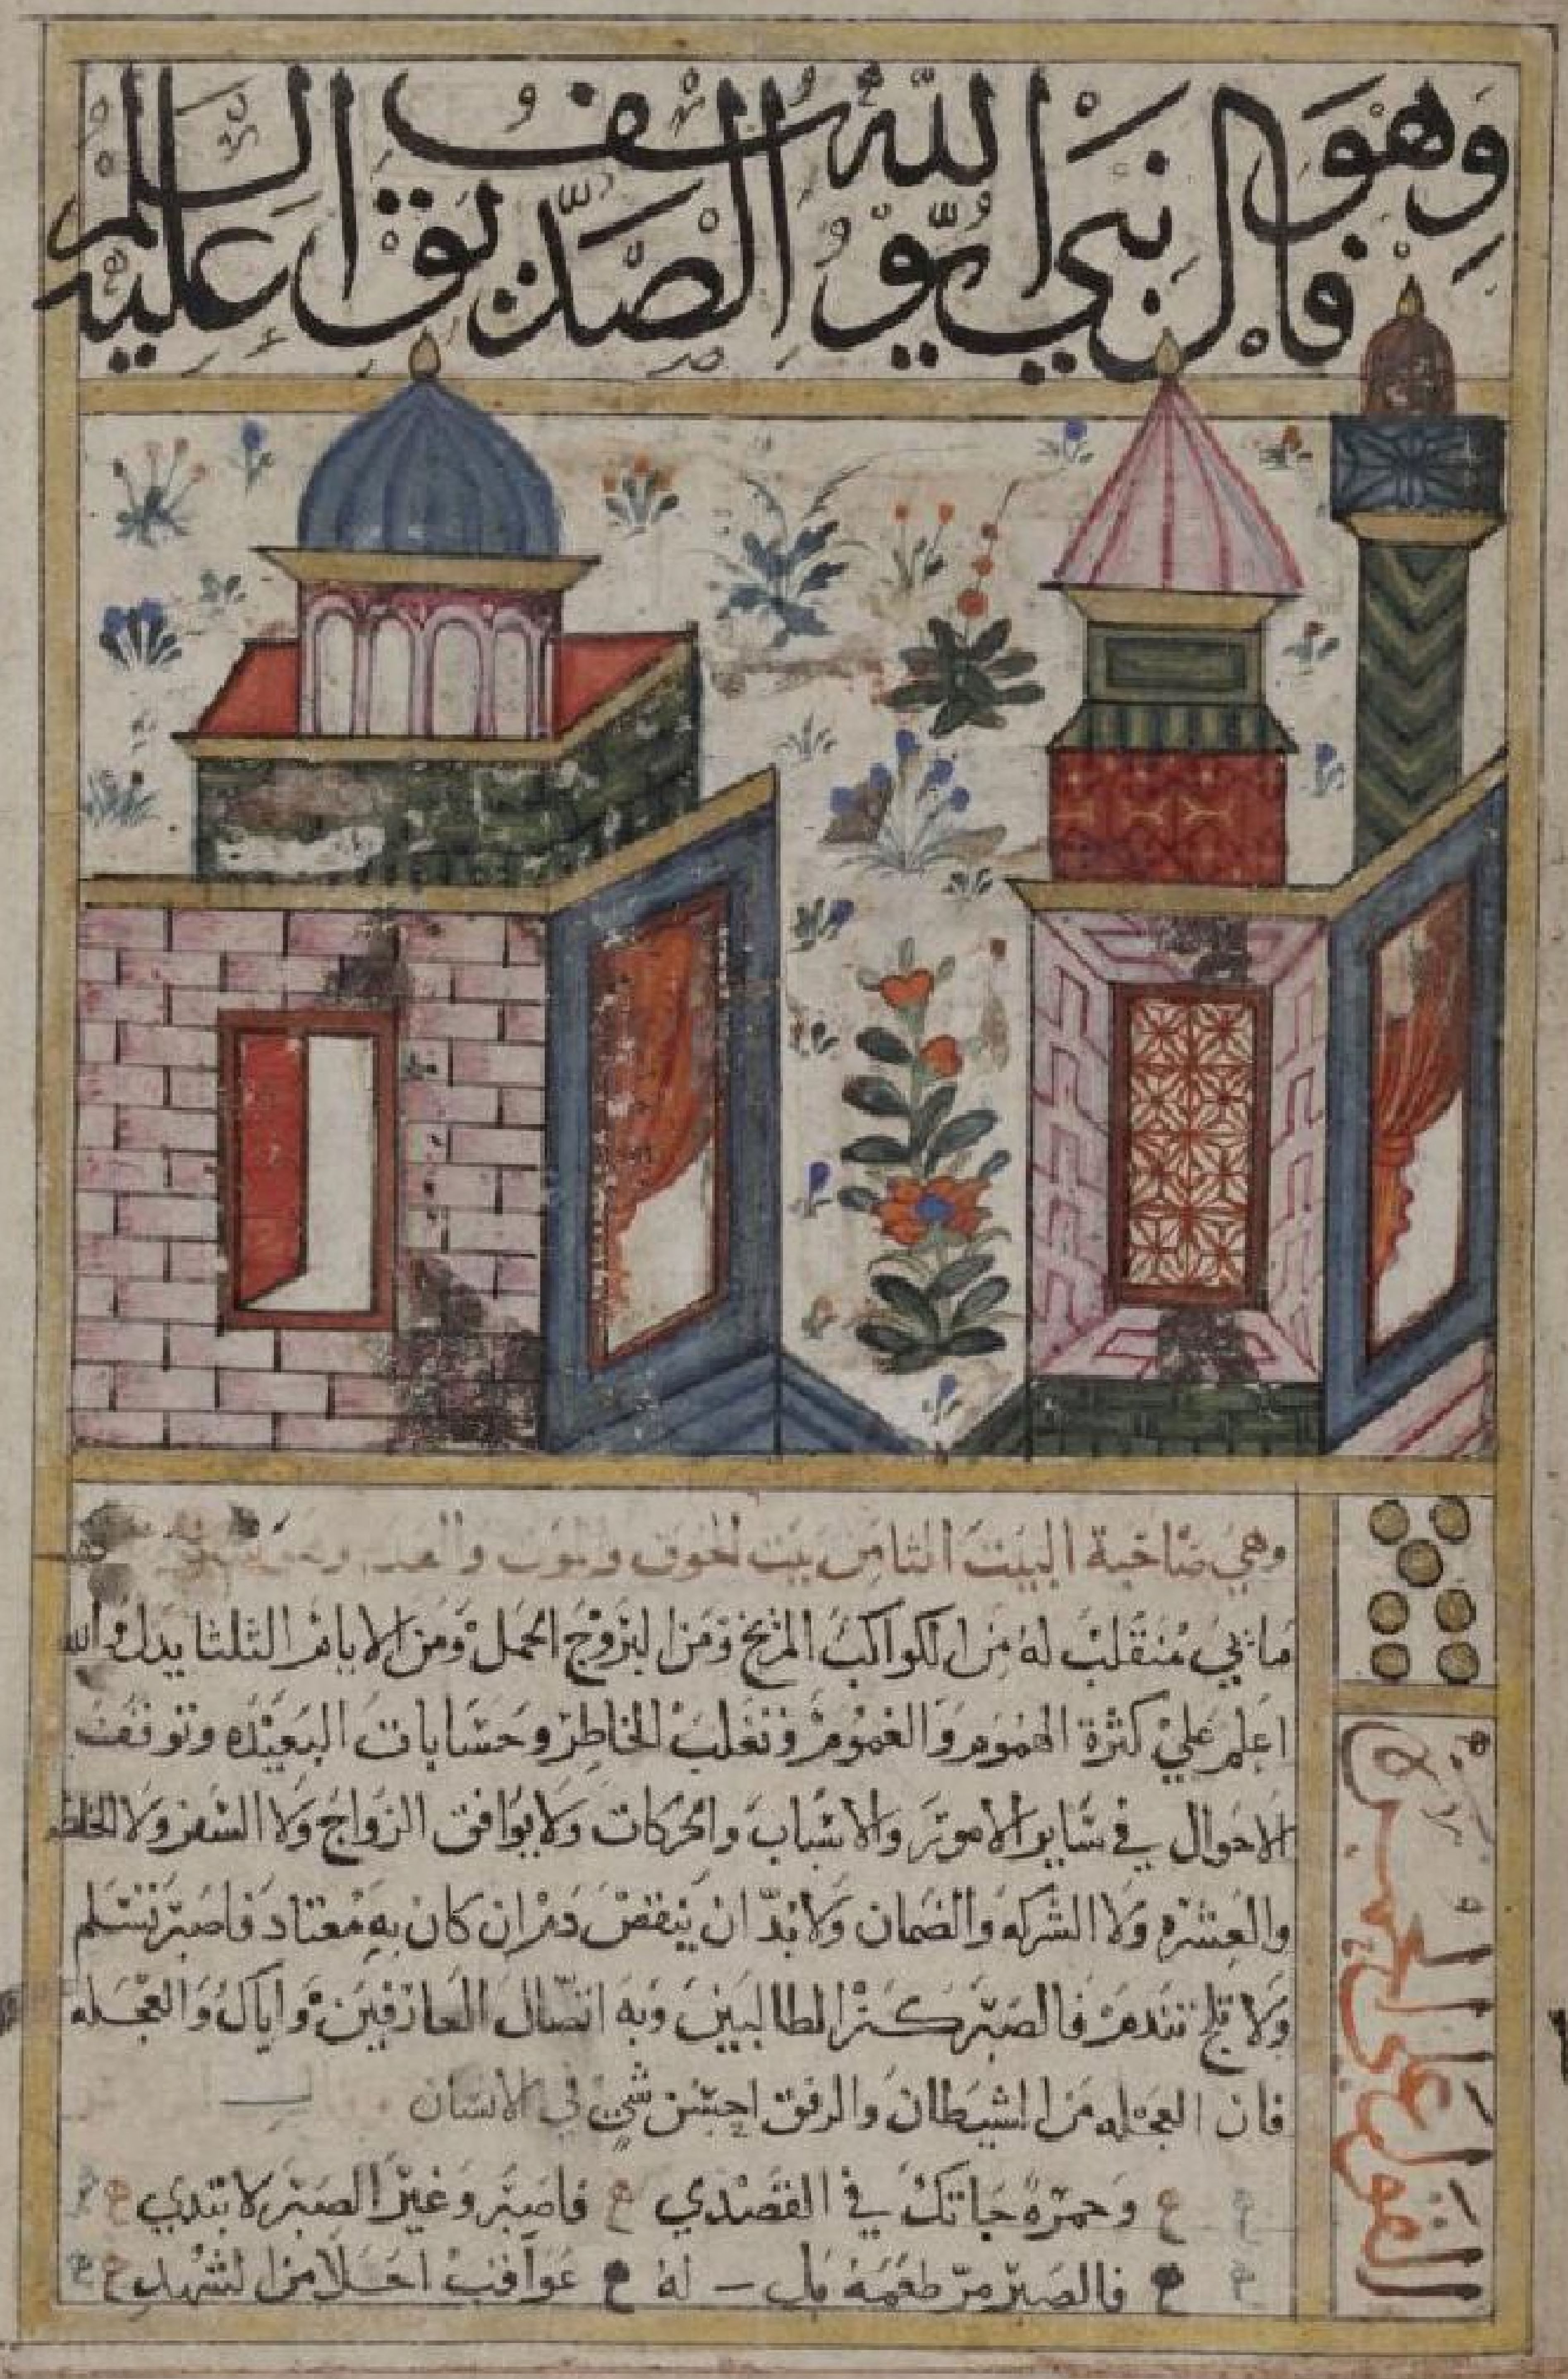 وهو فال نبي الله يوسف الصديق عليه السلام
وهي صاحبة البيت الثامن بيت الخوف والموت
مائي منقلب له من الكواكب المريخ ومن البروج الحمل ومن الايام الثلثا يدل والله
اعلم علي كثرة الهموم والغموم وتغلب الخاطر وحسابات البعيده وتوقفت
الاحوال في ساير الامور والاسباب والحركات ولا يوافق الزواج ولا السفر ولا
والعشره ولا الشركه والضمان ولا بد ان ينقص دم ان كان به معتاد فاصبر تسلم
ولا تلج تندم فالصبر كنز الطالبين وبه اتصال العارفين واياك والعجله
فان العجله من الشيطان والرفق احسن شي في الانسان
وحمرة جاتك في القصدي فاصبر وغير الصبر لا تبدي
فالصبر مر طعمه بل له عواقب احلا من الشهد
القول علي الحمره